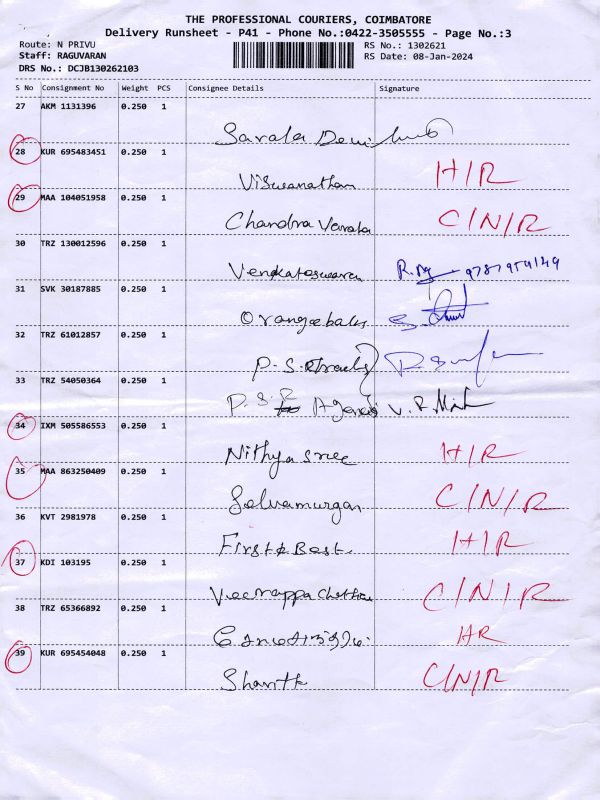 THE PROFESSIONAL COURIERS, COIMBATORE
Delivery Runsheet - P41 - Phone No.:0422-3505555 - Page No.:3
Route: N PRIVU RS No.: 1302621
Staff: RAGUVARAN RS Date: 08-Jan-2024
DRS No.: DCJB130262103
S No Consignment No Weight PCS Consignee Details Signature
27 AKM 1131396 0.250 1
Sarala Devi
28 KUR 695483451 0.250 1
Viswanathan H/R
29 MAA 104051958 0.250 1
Chandra C/N/R
30 TRZ 130012596 0.250 1
Venkateswaran
31 SVK 30187885 0.250 1
Orange
32 TRZ 61012857 0.250 1
P. S.
33 TRZ 54050364 0.250 1
P. S. R V. R
34 IXM 505586553 0.250 1
Nithyasree H/R
35 MAA 863250409 0.250 1
Selvamurgan C/N/R
36 KVT 2981978 0.250 1
First & Best H/R
37 KDI 103195 0.250 1
Veerappa C/N/R
38 TRZ 65366892 0.250 1
HR
39 KUR 695454048 0.250 1
C/N/R